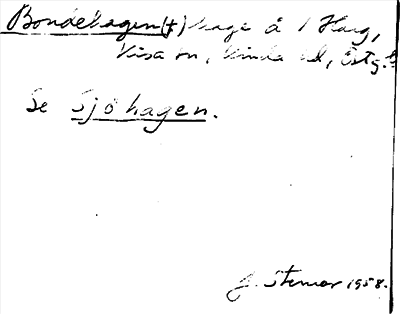 Bondehagen (†) hage å 1 Harg,
Kisa sn, Kinda hd, Östg.
Se Sjöhagen.
J. Stenior 1958.